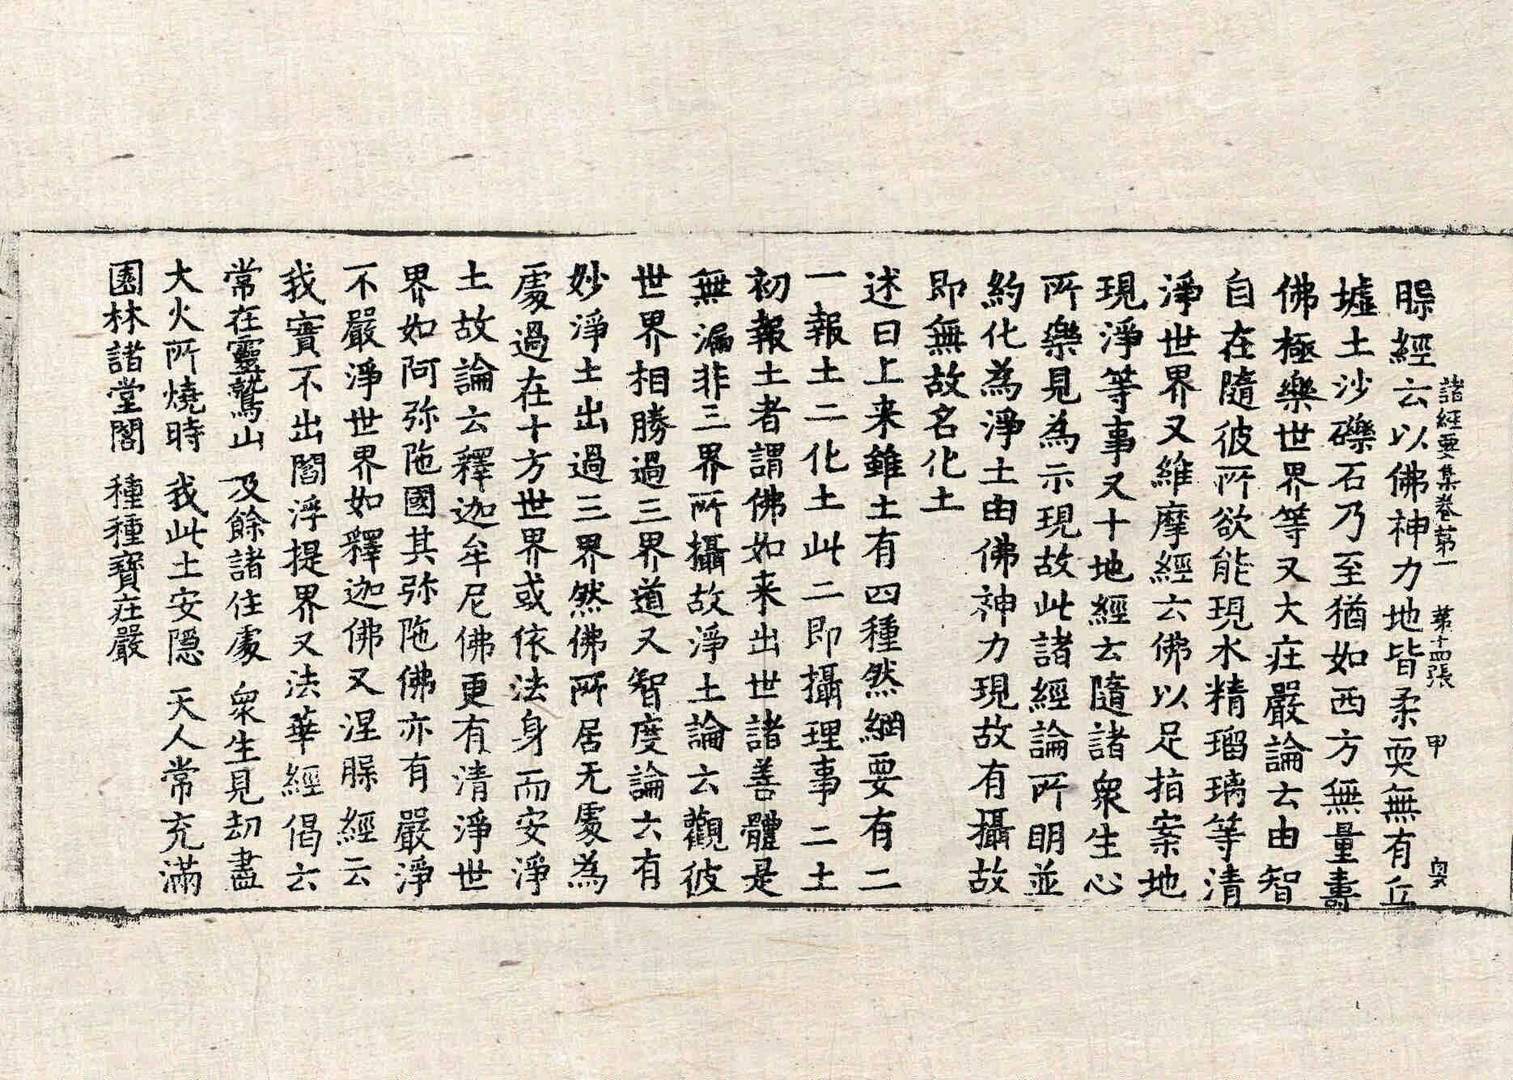 諸經要集卷第一 第十四張 甲
𣵀經云以佛神力地皆柔耎無有丘
墟土沙礫石乃至猶如西方無量壽
佛極樂世界等又大庄嚴論云由智
自在隨彼所欲能現水精瑠璃等清
淨世界又維摩經云佛以足指案地
現淨等事又十地經云隨諸衆生心
所樂見為示現故此諸經論所明並
約化為淨土由佛神力現故有攝故
即無故名化土
述曰上来雖土有四種然網要有二
一報土二化土此二即攝理事二土
初報土者謂佛如来出世諸善體是
無漏非三界所攝故淨土論云觀彼
世界相勝過三界道又智度論云有
妙淨土出過三界然佛所居无處為
處過在十方世界或依法身而安淨
土故論云釋迦牟尼佛更有清淨世
界如阿弥陁國其弥陁佛亦有嚴淨
不嚴淨世界如釋迦佛又涅𦠿經云
我實不出閻浮提界又法華經偈云
常在靈鷲山 及餘諸住處 衆生見劫盡
大火所燒時 我此土安隱 天人常充滿
園林諸堂閣 種種寶庄嚴